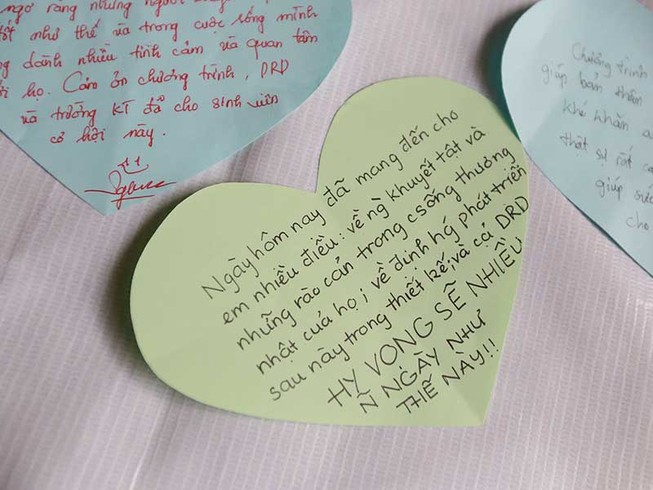 ngờ rằng những người
tốt như thế và trong cuộc sống mình
dành nhiều tình cảm và quan tâm
họ. Cảm ơn chương trình, DRD
và trường KT đã cho sinh viên
có hội này.
Ngày hôm nay đã mang đến cho
em nhiều điều: về ng̀ khuyết tật và
những rào cản trong csống thường
nhật của họ; về định hg phát triển
sau này trong thiết kế; và cả DRD
HY VỌNG SẼ NHIỀU
N NGÀY NHƯ
THẾ NÀY!!
Chương trình
giúp bản thân
khó khăn
thật sự rất
giúp
cho